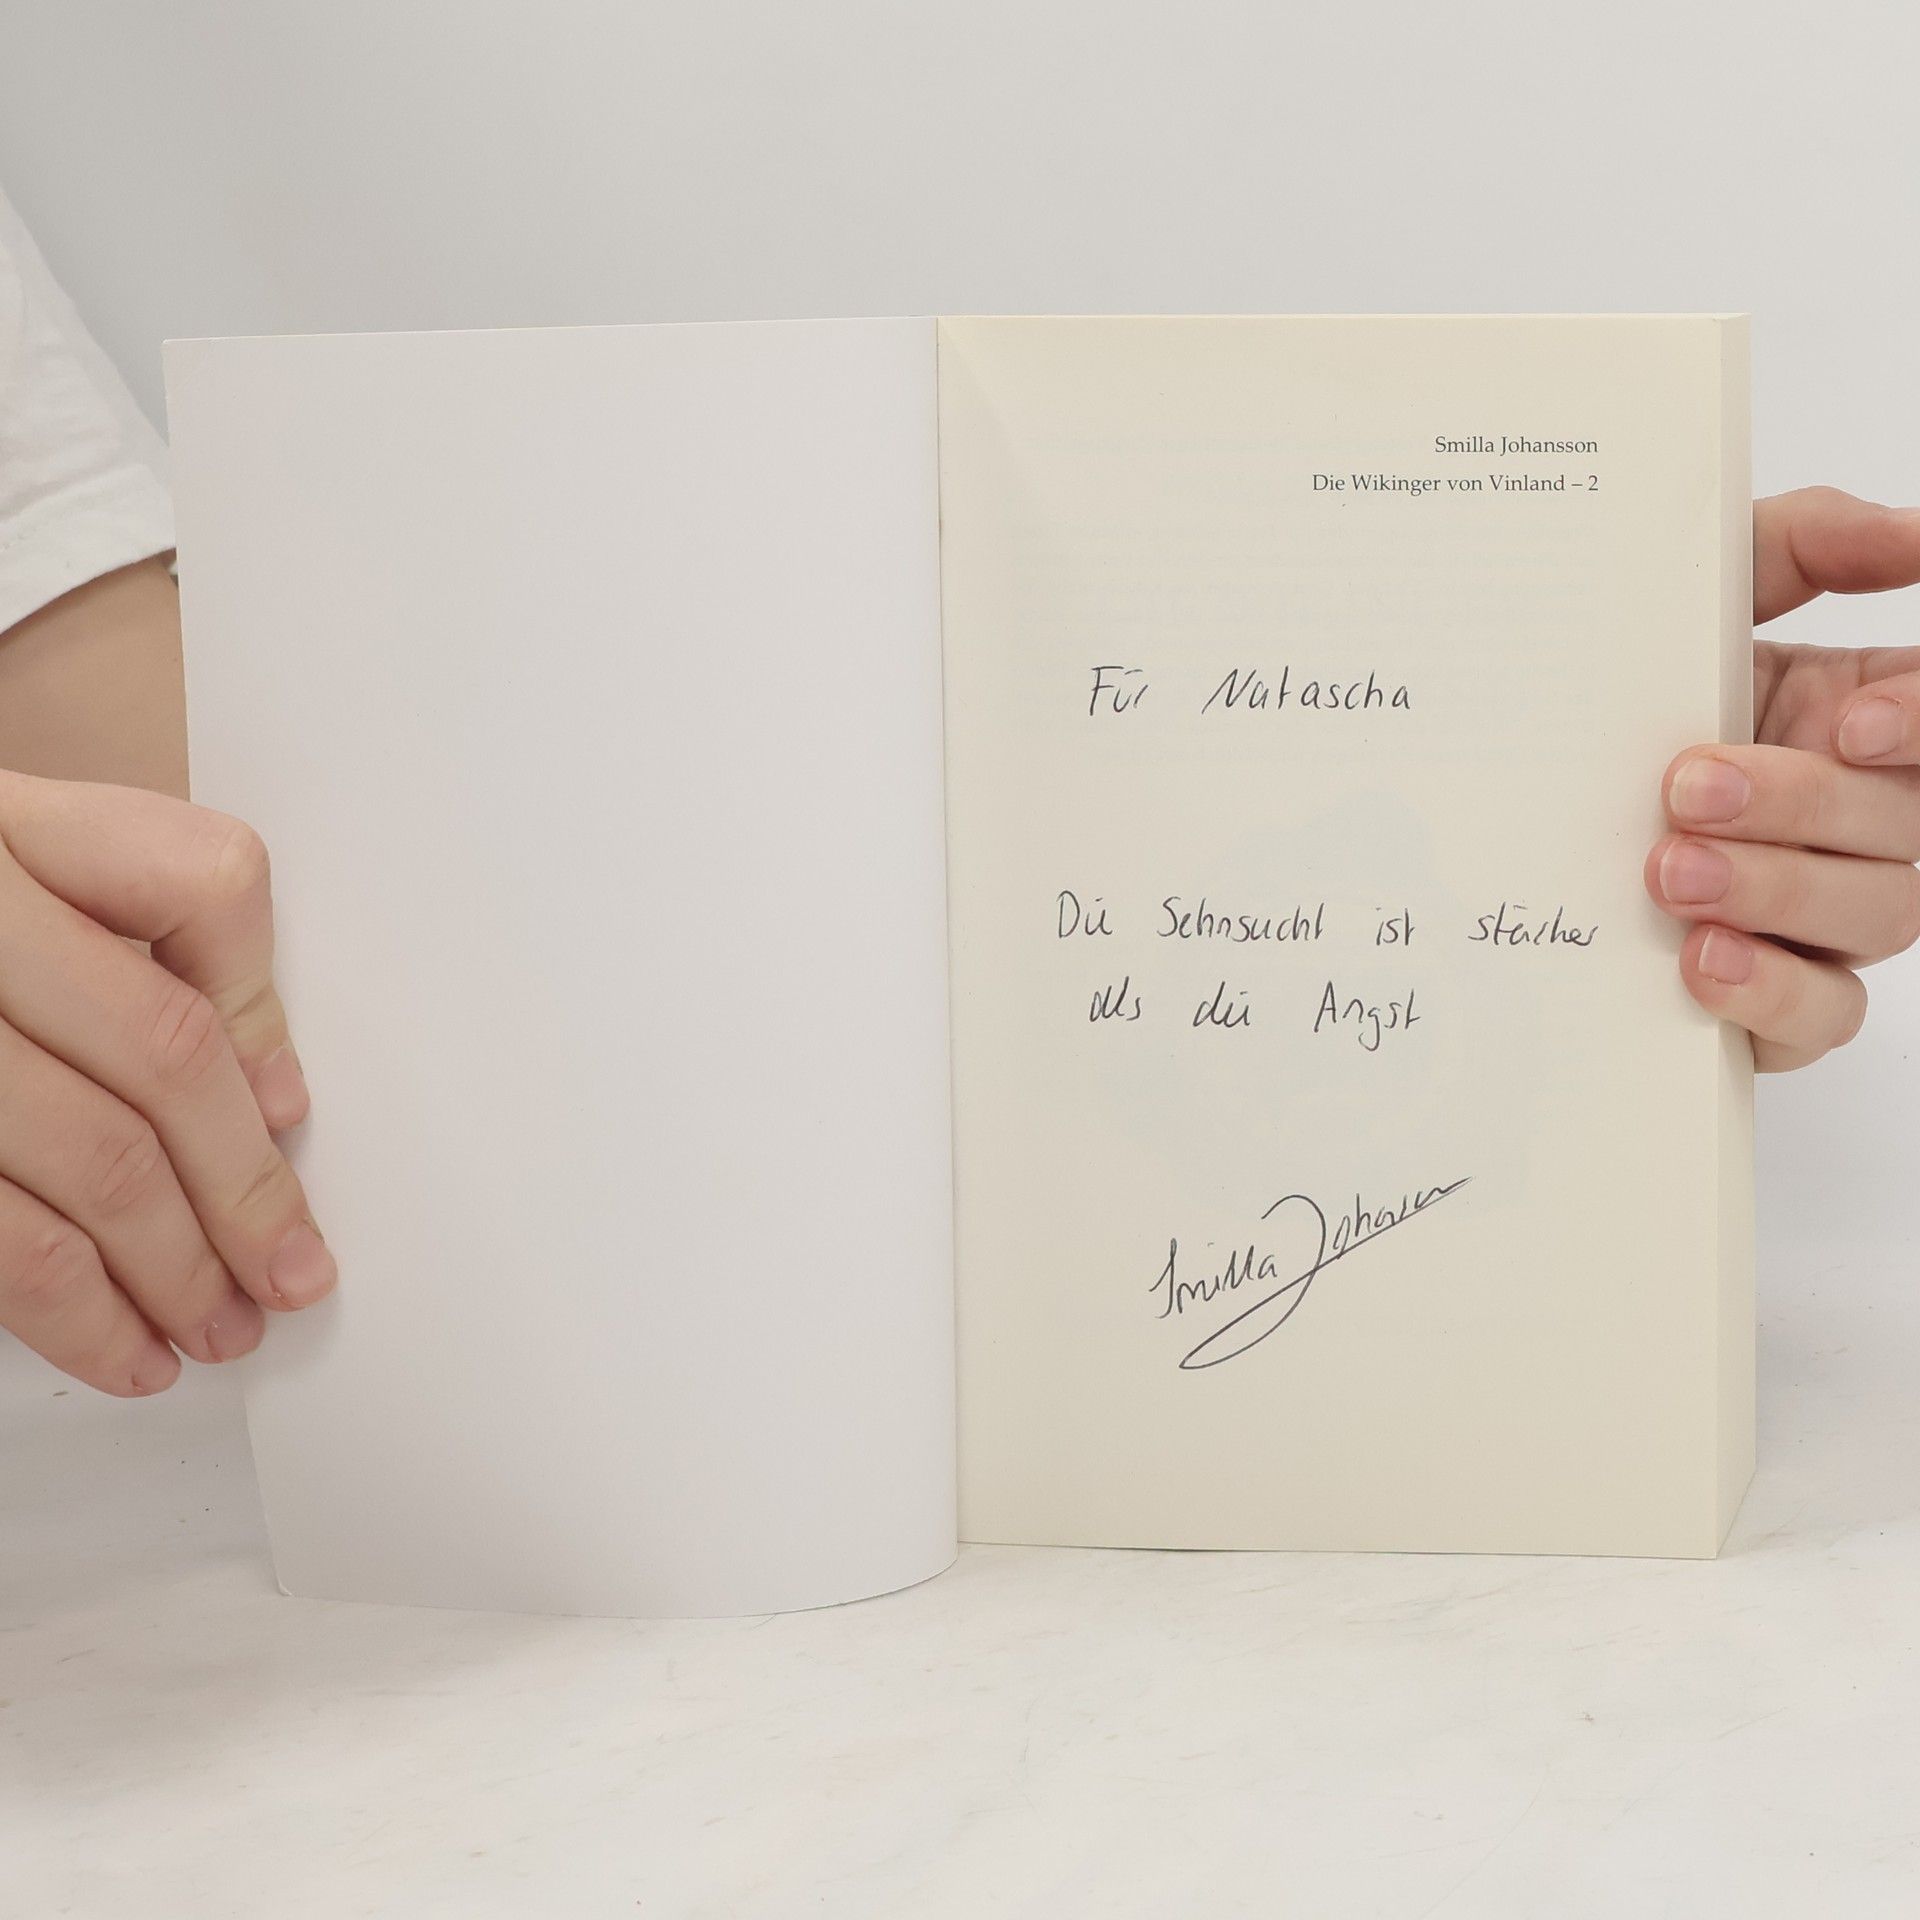 Smilla Johansson
Die Wikinger von Vinland – 2
Für Natascha
Die Sehnsucht ist stärker
als die Angst
Smilla Johansson